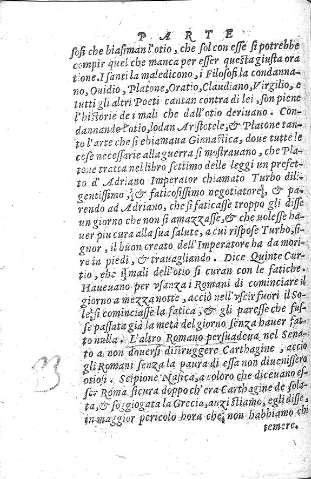 PARTE
sosi che biasiman l'otio, che sol con esse si potrebbe
compir quel che manca per esser questa giusta ora
tione. I santi la maledicono, i Filosofi la condanna-
no, Ouidio, Platone, Oratio, Claudiano, Virgilio, e
tutti gli altri Poeti cantan contra di lei, son piene
l'historie de i mali che dall'otio deriuano. Con-
dannando l'otio, lodan Aristotele, & Platone tan-
to l'arte che si chiamaua Ginnastica, doue tutte le
cose necessarie alla guerra si mostrauano, che Pla-
tone tratta nel libro settimo delle leggi un prefet-
to d'Adriano Imperator chiamato Turbo dili-
gentissimo, & faticosissimo negotiatore, & pa-
rendo ad Adriano, che si faticasse troppo gli disse
un giorno che non si amazzasse, & che uolesse ha-
uer piu cura alla sua salute, a cui rispose Turbo, si-
gnor, il buon creato dell'Imperatore ha da mori-
re in piedi, & trauagliando. Dice Quinte Cur-
tio, che i mali dell'otio si curan con le fatiche.
Haueuano per vsanza i Romani di cominciare il
giorno a mezza notte, acciò nell'vscir fuori il So-
le si cominciasse la fatica, & gli paresse che fus-
se passata già la metà del giorno senza hauer fat-
to nulla. L'altro Romano persuadeua nel Sena-
to a non douersi distruggere Carthagine, acciò
gli Romani senza la paura di essa non diuenissero
otiosi. Scipione Nasica, a coloro che diceuano es-
ser Roma sicura doppo ch'era Carthagine desola-
ta, & soggiogata la Grecia, anzi stiamo, egli disse,
in maggior pericolo hora che non habbiamo chi
temere.